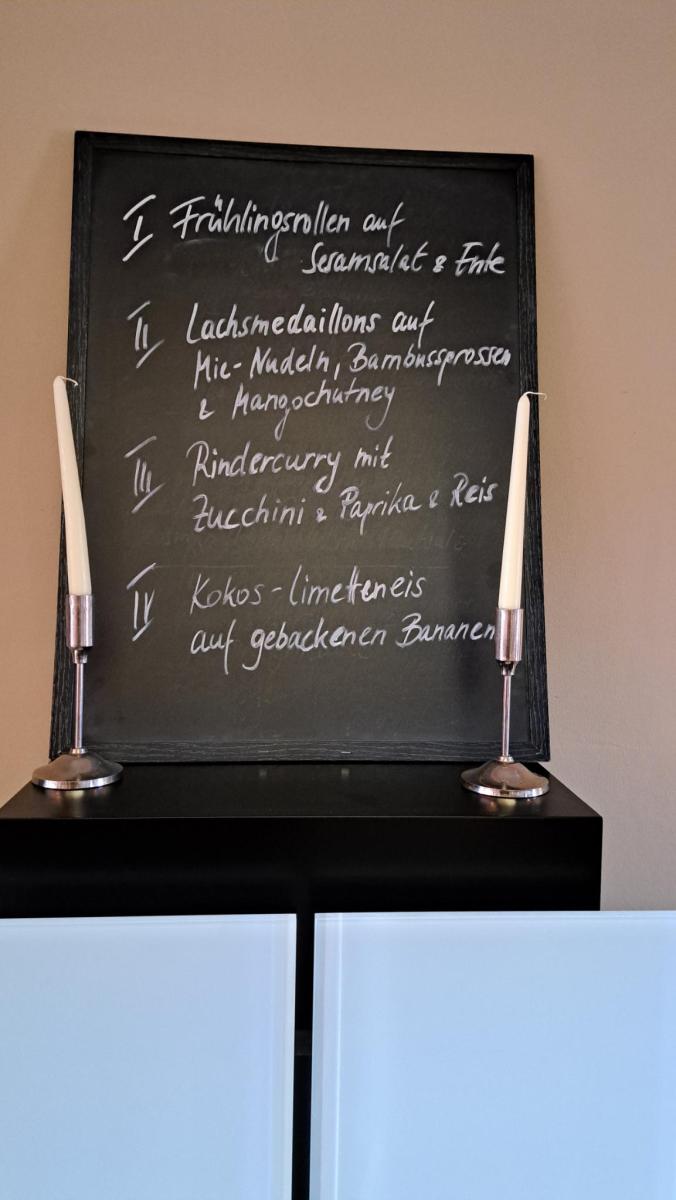 I Frühlingsrollen auf
Sesamsalat & Ente
II Lachsmedaillons auf
Mie-Nudeln, Bambussprossen
& Mangochutney
III Rindercurry mit
Zucchini & Paprika & Reis
IV Kokos-Limetteneis
auf gebackenen Bananen